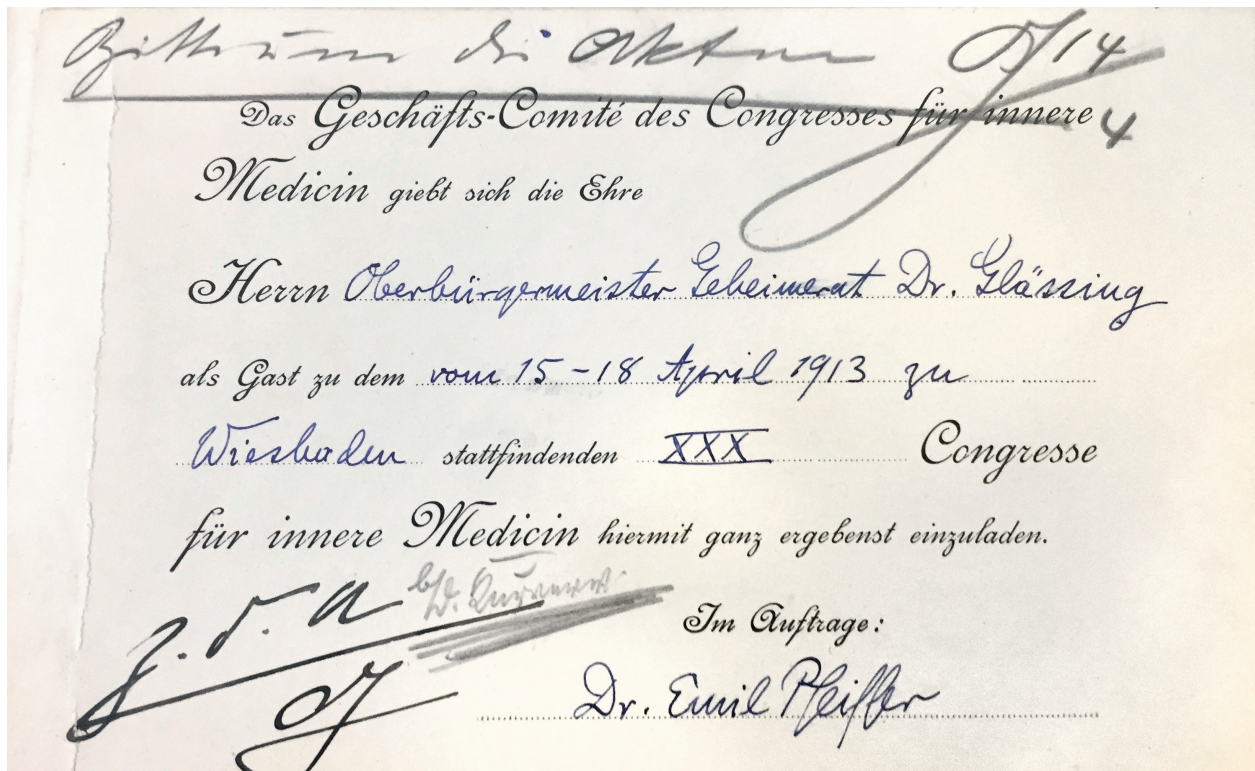 Bitte um die Akten 14/4
Das Geschäfts-Comité des Congresses für innere
Medicin giebt sich die Ehre
Herrn Oberbürgermeister Geheimerat Dr. Glässing
als Gast zu dem vom 15-18 April 1913 zu
Wiesbaden stattfindenden XXX Congresse
für innere Medicin hiermit ganz ergebenst einzuladen.
z. d. A
Im Auftrage:
Dr. Emil Pfeiffer